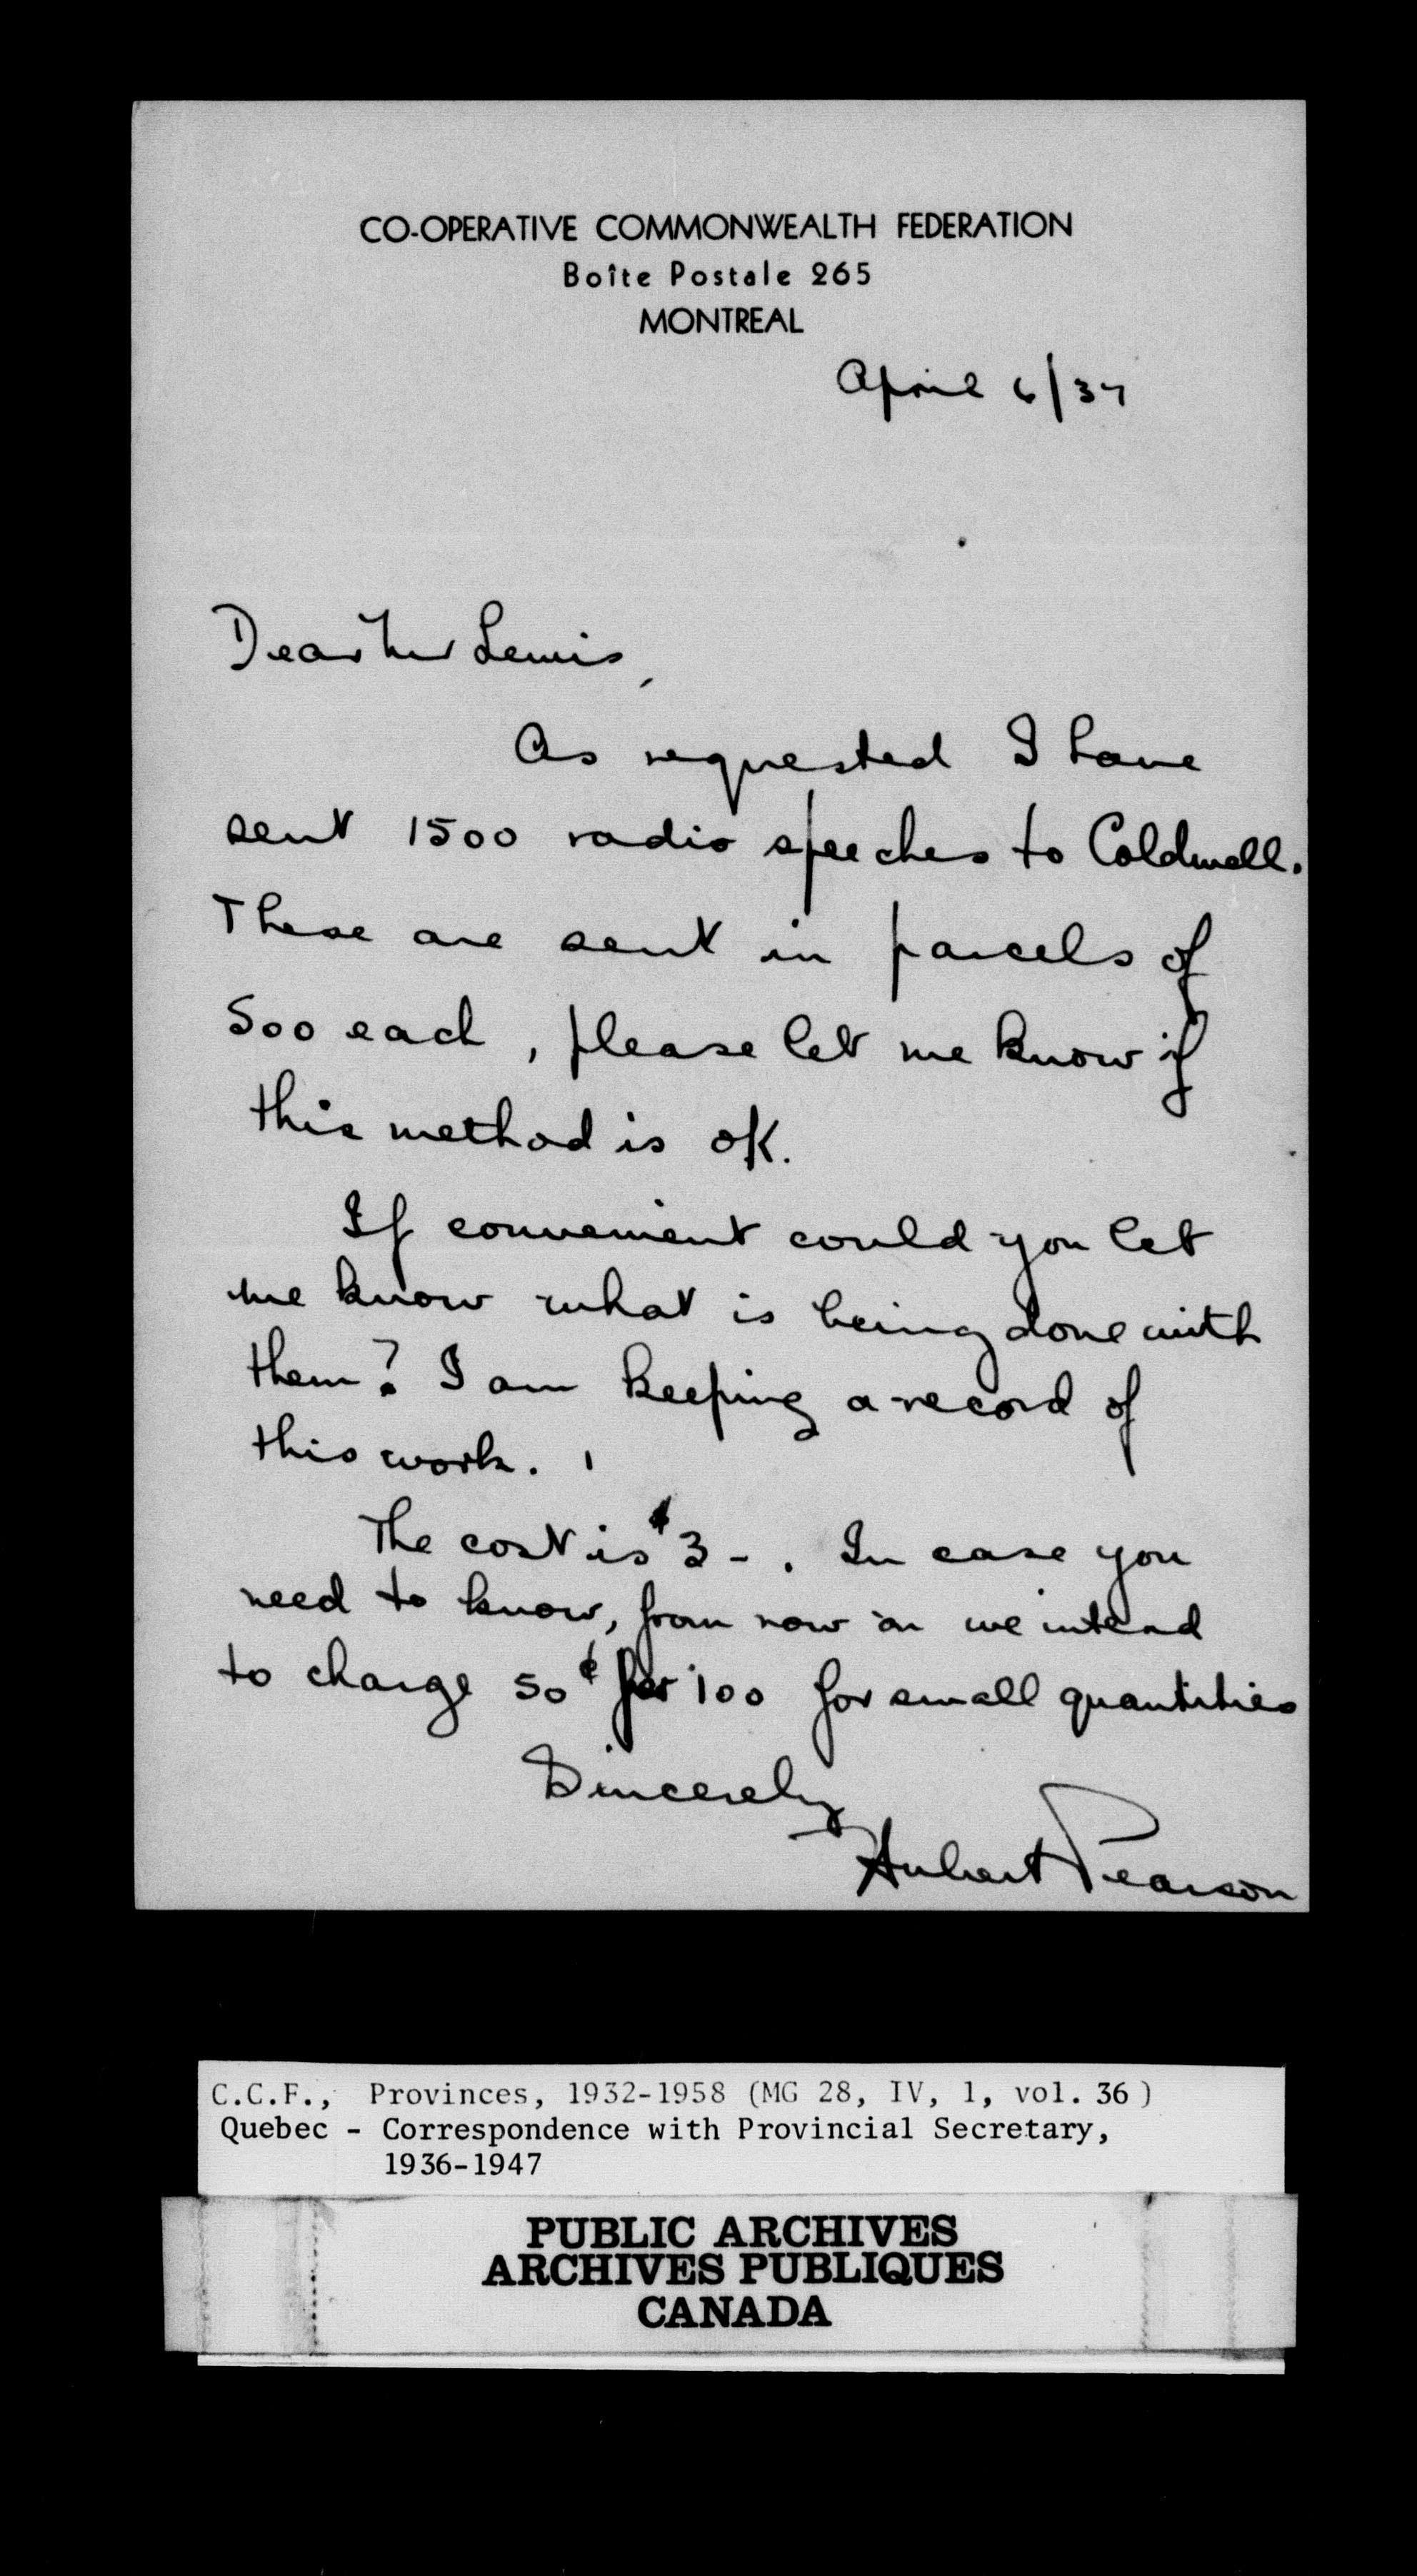 CO-OPERATIVE COMMONWEALTH FEDERATION
Boîte Postale 265
MONTREAL
April 6/37
Dear Mr Lewis,
As requested I have
sent 1500 radio speeches to Coldwell.
These are sent in parcels of
500 each, please let me know if
this method is OK.
If convenient could you let
me know what is being done with
them? I am keeping a record of
this work.
The cost is $3-. In case you
need to know, from now on we intend
to charge 50¢ per 100 for small quantities
Sincerely
Hubert Pearson
C.C.F., Provinces, 1932-1958 (MG 28, IV, 1, vol. 36)
Quebec - Correspondence with Provincial Secretary,
1936-1947
PUBLIC ARCHIVES
ARCHIVES PUBLIQUES
CANADA